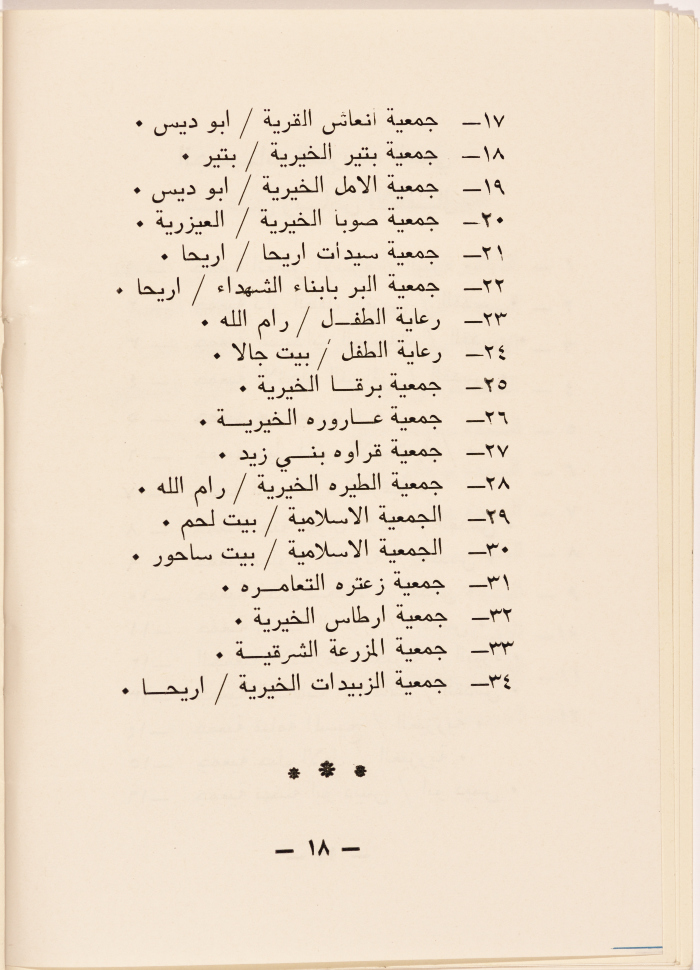 ١٧ــ جمعية انعاش القرية / ابو ديس ٠
١٨ــ جمعية بتير الخيرية / بتير ٠
١٩ــ جمعية الامل الخيرية / ابو ديس ٠
٢٠ــ جمعية صوبا الخيرية / العيزرية ٠
٢١ــ جمعية سيدات اريحا / اريحا ٠
٢٢ــ جمعية البر بابناء الشهداء / اريحا ٠
٢٣ــ رعاية الطفــل / رام الله ٠
٢٤ــ رعاية الطفل / بيت جالا ٠
٢٥ــ جمعية برقــا الخيرية ٠
٢٦ــ جمعية عــاروره الخيريــة ٠
٢٧ــ جمعية قراوه بنــي زيد ٠
٢٨ــ جمعية الطيره الخيرية / رام الله ٠
٢٩ــ الجمعية الاسلامية / بيت لحم ٠
٣٠ــ الجمعية الاسلامية / بيت ساحور ٠
٣١ــ جمعية زعتره التعامــره ٠
٣٢ــ جمعية ارطاس الخيرية ٠
٣٣ــ جمعية المزرعة الشرقيــة ٠
٣٤ــ جمعية الزبيدات الخيرية / اريحــا ٠
* * *
— ١٨ —